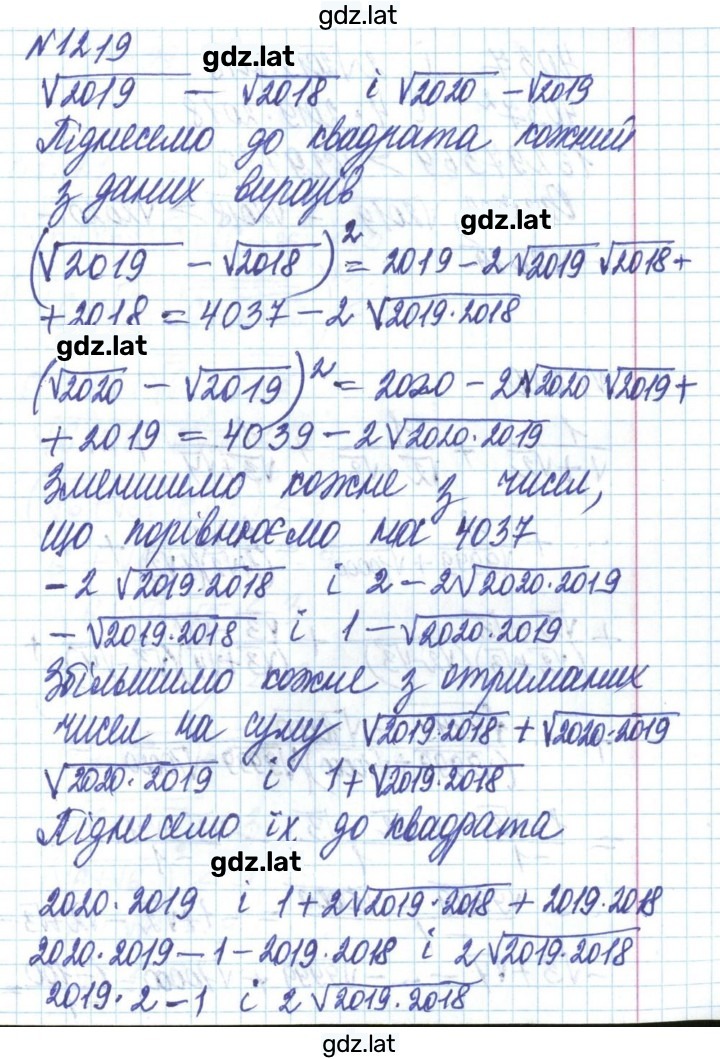 gdz.lat
№1219
gdz.lat
√2019 - √2018 і √2020 - √2019
Піднесемо до квадрата кожний
з даних виразів
gdz.lat
(√2019 - √2018)² = 2019 - 2√2019 √2018 +
+ 2018 = 4037 - 2√2019·2018
gdz.lat
(√2020 - √2019)² = 2020 - 2√2020 √2019 +
+ 2019 = 4039 - 2√2020·2019
Зменшимо кожне з чисел,
що порівнюємо на 4037
- 2√2019·2018 і 2 - 2√2020·2019
- √2019·2018 і 1 - √2020·2019
Збільшимо кожне з отриманих
чисел на суму √2019·2018 + √2020·2019
√2020·2019 і 1 + √2019·2018
Піднесемо їх до квадрата
gdz.lat
2020·2019 і 1 + 2√2019·2018 + 2019·2018
2020·2019 - 1 - 2019·2018 і 2√2019·2018
2019·2 - 1 і 2√2019·2018
gdz.lat